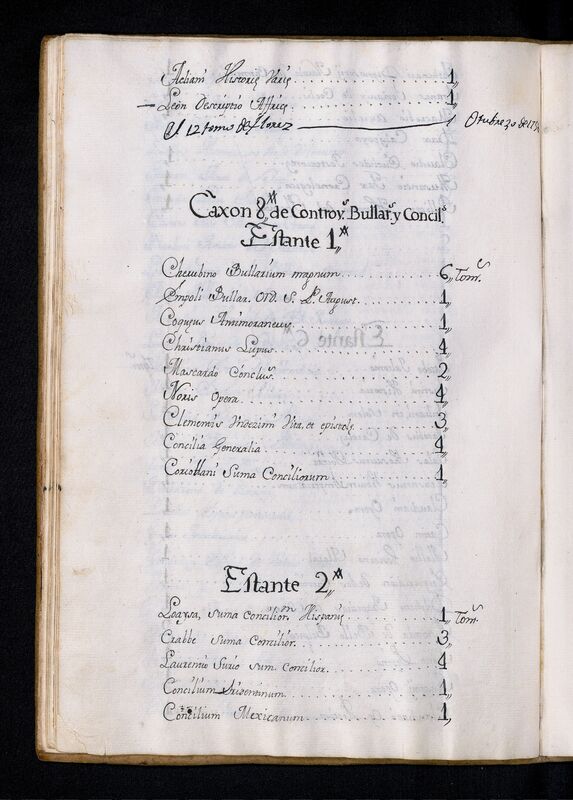 Aeliani Historiȩ Variȩ 1,,
Leòn Descriptio Affricȩ 1,,
El 12 tomo de florez 1 Otubre 30 de
Caxon 8,,ᵃ de Controvˢ. Bullarˢ. y Concilˢ.
Estante 1,,ᵃ
Cherubino Bullarium magnum 6,, Tomˢ.
Émpoli Bullar. Ord. S. P. August. 1,,
Coquȩus Antimoranȩus 1,,
Christianus Lupus 4,,
Mascardo Conclus. 2,,
Noris Opera 4,,
Clementis Undezimi Vita, et epistolȩ 3,,
Concilia Generalia 4,,
Coriollani Suma Conciliorum 1,,
Estante 2,,ᵃ
Loaysa, suma conciliorᵐ Hispaniȩ 1,, Tomˢ.
Crabbe suma Concilior. 3,,
Laurentio Surio sum. Concilior. 4,,
Concilium tridentinum 1,,
Concilium Mexicanum 1,,